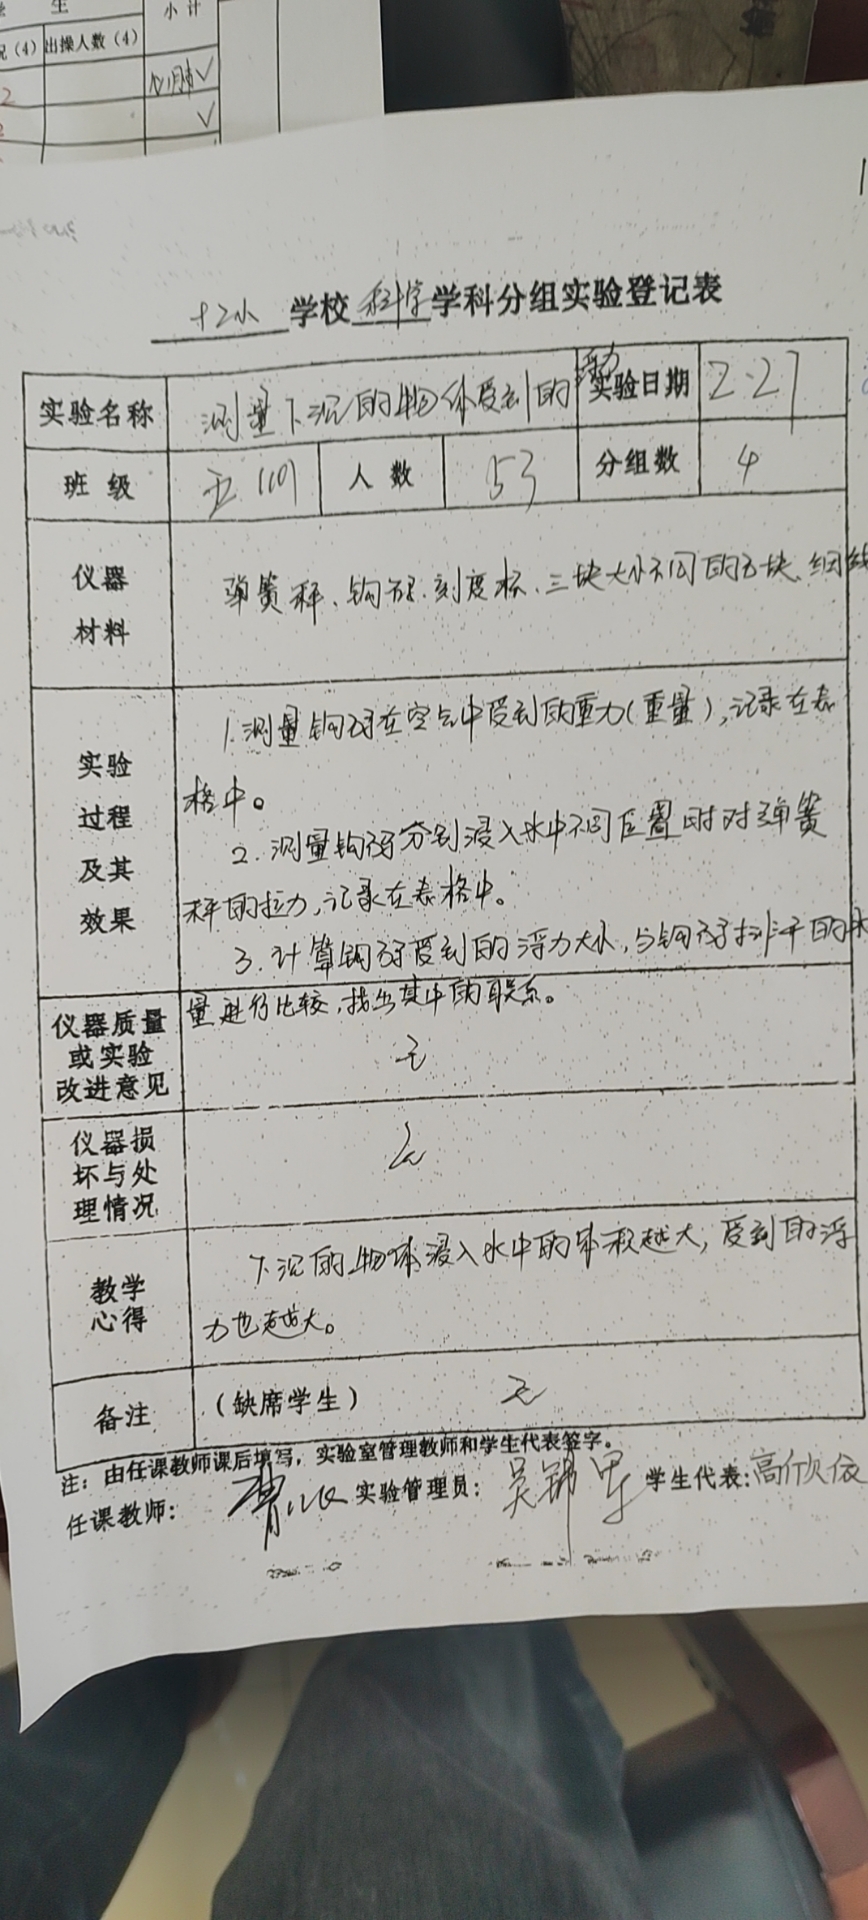 生
小计
况（4）
出操人数（4）
2
十二小学校科学学科分组实验登记表
实验名称
测量下沉的物体受到的浮力
实验日期
2.27
班级
五(10)
人数
53
分组数
4
仪器
材料
弹簧秤、钩码、刻度杯、三块大小不同的石块、细线
实验
过程
及其
效果
1.测量钩码在空气中受到的重力(重量),记录在表
格中。
2.测量钩码分别浸入水中不同位置时对弹簧
秤的拉力,记录在表格中。
3.计算钩码受到的浮力大小,与钩码排开的水
量进行比较,找出其中的联系。
仪器质量
或实验
改进意见
无
仪器损
坏与处
理情况
无
教学
心得
下沉的物体浸入水中的体积越大,受到的浮
力也越大。
备注
（缺席学生）
无
注：由任课教师课后填写，实验室管理教师和学生代表签字。
任课教师：
实验管理员：吴锦军
学生代表：高欣依